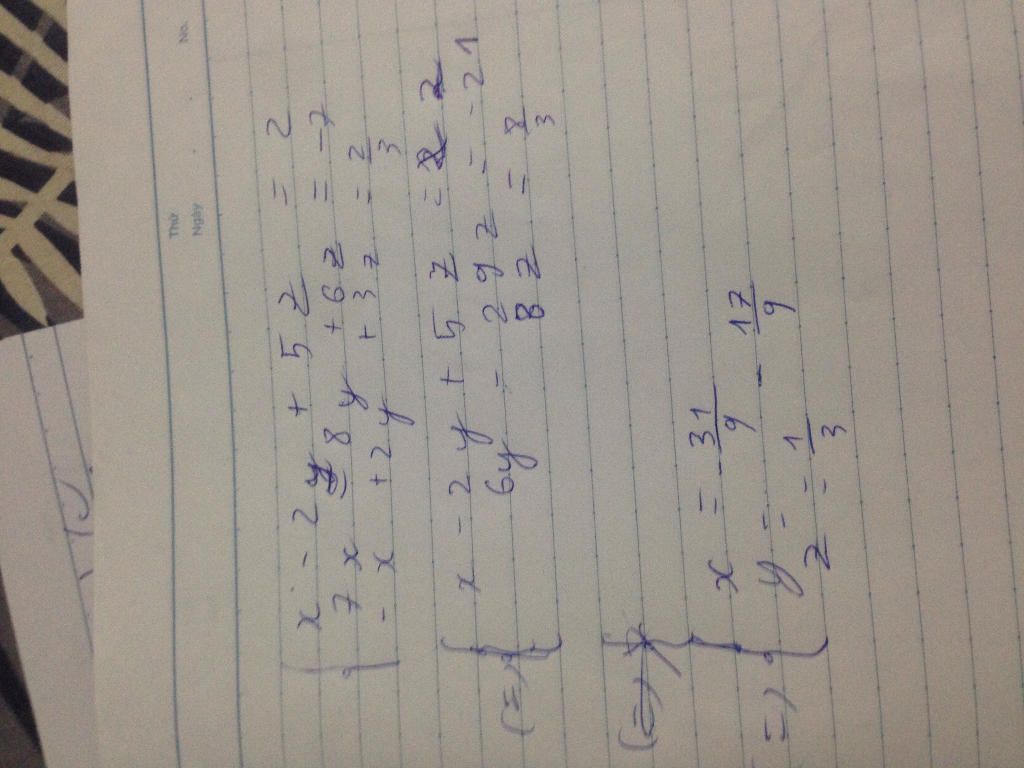 No.
Thứ
Ngày
x - 2y + 5z = 2
7x - 8y + 6z = -7
-x + 2y + 3z = 2/3
x - 2y + 5z = 2
(=) 6y - 29z = -21
8z = 8/3
(=)
x = -31/9
=) y = -17/9
z = 1/3